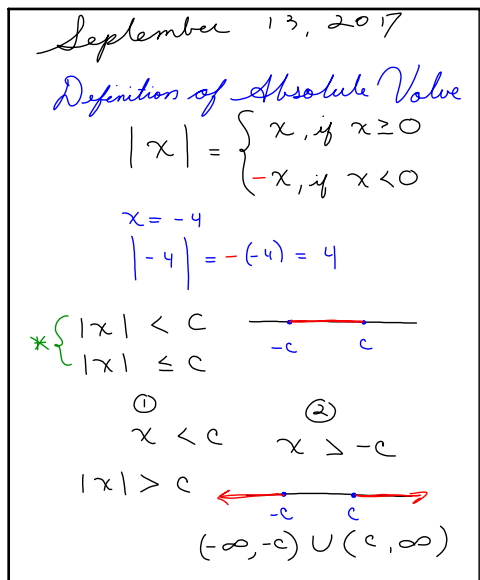 September 13, 2017
Definition of Absolute Value
|x| = { x, if x ≥ 0
-x, if x < 0
x = -4
|-4| = -(-4) = 4
* { |x| < c
|x| ≤ c
-c c
① ②
x < c x > -c
|x| > c
-c c
(-∞, -c) ∪ (c, ∞)